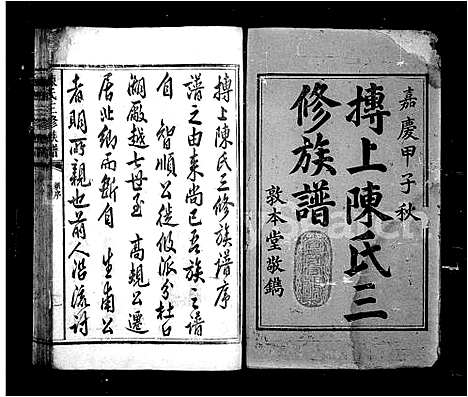 嘉慶甲子秋
摶上陳氏三
修族譜
敦本堂敬鐫
摶上陳氏三修族譜序
譜之由來尚已吾族之譜
自 智順公徙攸派分杜口
溯厥越七世至 高規公遷
居北鄉而斷自 生甫公
者明所親也前人沿流討